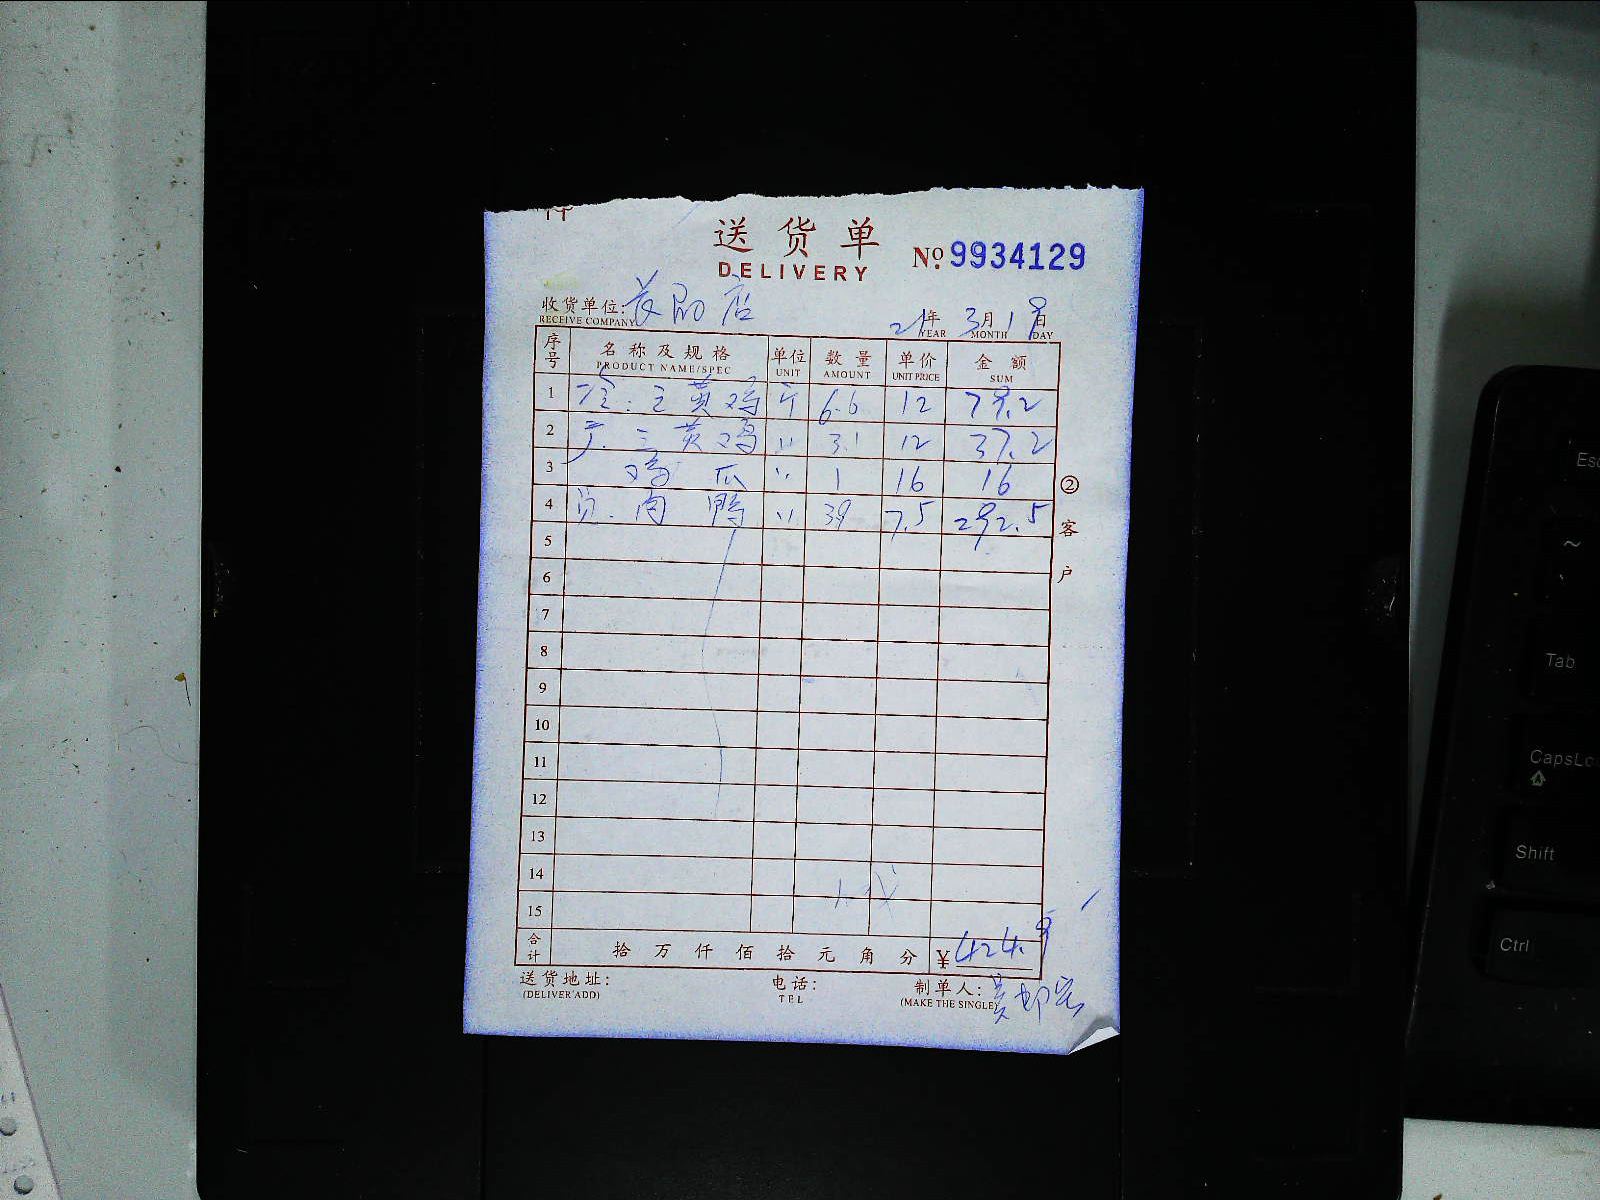 送货单
DELIVERY
No. 9934129
收货单位:
RECEIVE COMPANY 店
21年 3月 19日
YEAR MONTH DAY
序号 名称及规格 单位 数量 单价 金额
PRODUCT NAME/SPEC UNIT AMOUNT UNIT PRICE SUM
1 冷.三黄鸡 斤 6.6 12 79.2
2 三黄鸡 〃 3.1 12 37.2
3 鸡爪 〃 1 16 16
4 肉鸭 〃 39 7.5 292.5
5
6
7
8
9
10
11
12
13
14
15
合计 拾万仟佰拾元角分 ¥424.9
送货地址: 电话: 制单人:
(DELIVER ADD) TEL (MAKE THE SINGLE)
②客户
Esc
~
、
Tab
CapsLo
Shift
Ctrl